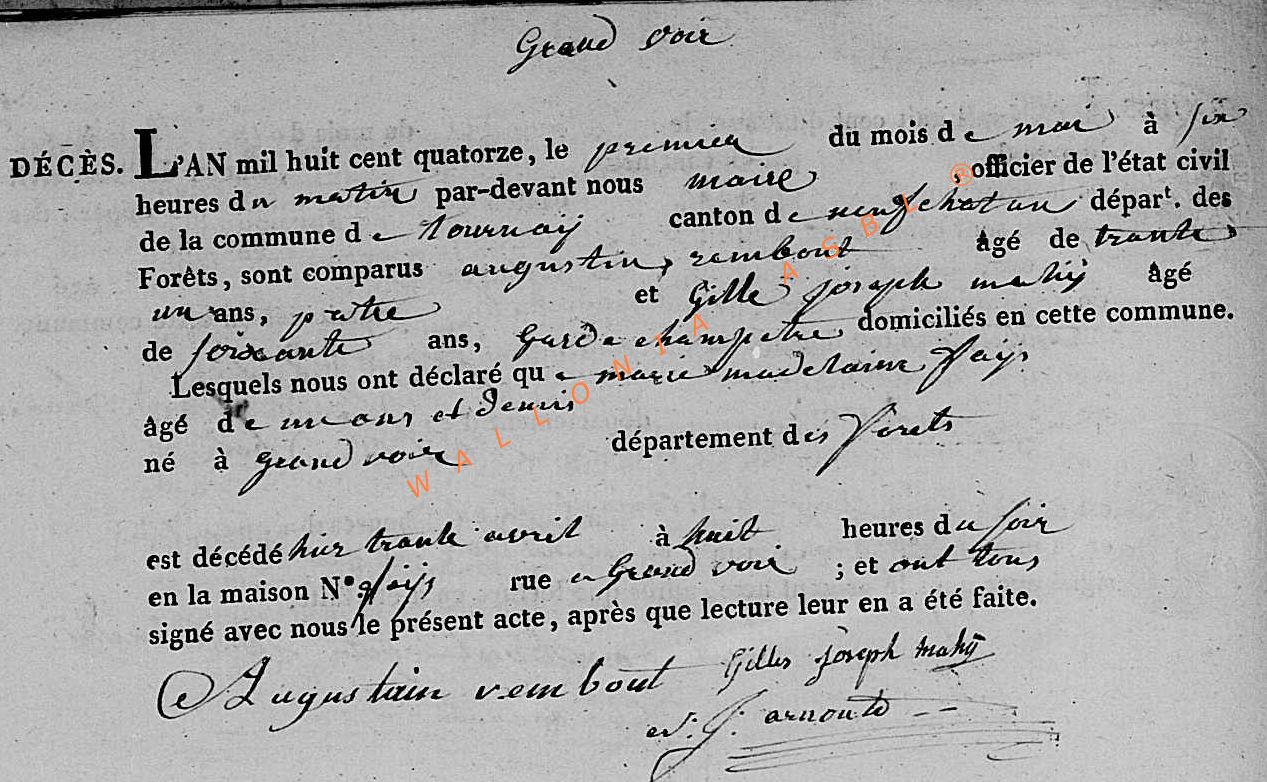 Grand voir
DÉCÈS. L'AN mil huit cent quatorze, le premier du mois de mai à six
heures du matin par-devant nous maire , officier de l'état civil
de la commune de tournay canton de neufchatau départ. des
Forêts, sont comparus augustin rembout âgé de trante
un ans, patre et Gille joseph mahy âgé
de soixante ans, Garde champetre domiciliés en cette commune.
Lesquels nous ont déclaré que marie madelaine fays
âgé de un ans et demis
né à grand voir département des forets
est décédé hier trante avril à huit heures du soir
en la maison N° fays rue a Grand voir ; et ont tous
signé avec nous le présent acte, après que lecture leur en a été faite.
Augustain rembout Gilles joseph mahy
J. arnould
WALLONIA ASBL ®